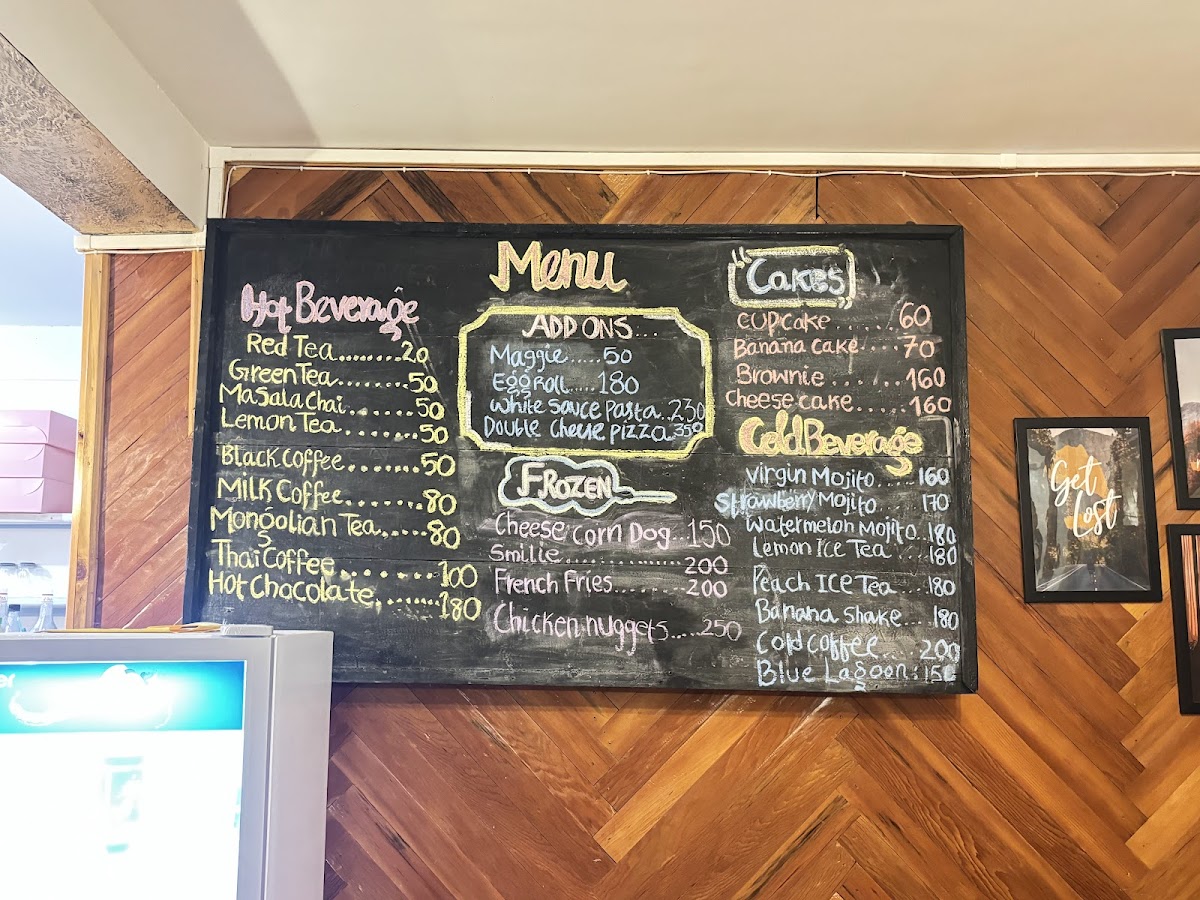 Menu
Hot Beverage
Red Tea........20
Green Tea........50
Masala Chai........50
Lemon Tea.......50
Black coffee.......50
Milk Coffee.......80
Mongolian Tea.....80
Thai Coffee.......100
Hot Chocolate.......180
ADD ONS...
Maggie.....50
Egg Roll.....180
White Sauce Pasta..230
Double cheese pizza.350
FROZEN
Cheese corn Dog...150
Smilie............200
French Fries........200
Chicken nuggets.....250
"Cakes"
cupcake......60
Banana cake....70
Brownie.......160
cheese cake.....160
Cold Beverage
Virgin Mojito..160
Strawberry Mojito 170
Watermelon Mojito.180
Lemon Ice Tea...180
Peach ICE Tea...180
Banana shake...180
Cold coffee...200
Blue Lagoon:150
Get
Lost